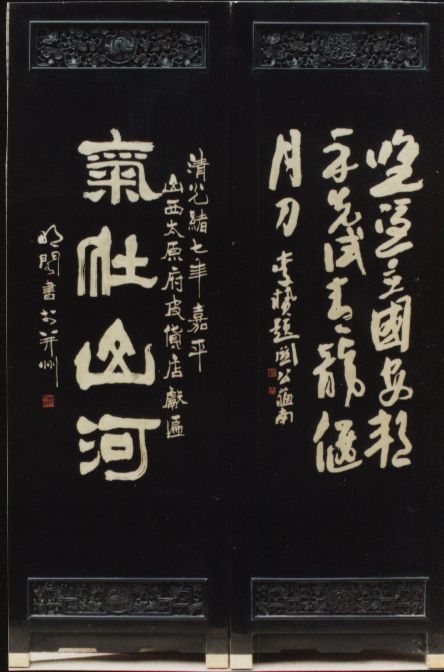 惟憑立國安邦
手先试青龍偃
月刀 李贄題關公
清光緒七年嘉平
山西太原府皮貨店獻匾
氣壯山河
書於并州